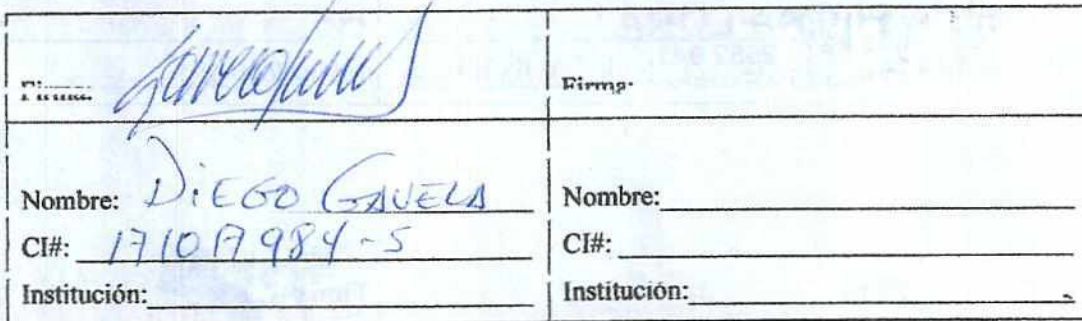 Firma: Firma:
Nombre: DIEGO GAVELA Nombre:
CI#: 171017984-5 CI#:
Institución: Institución: